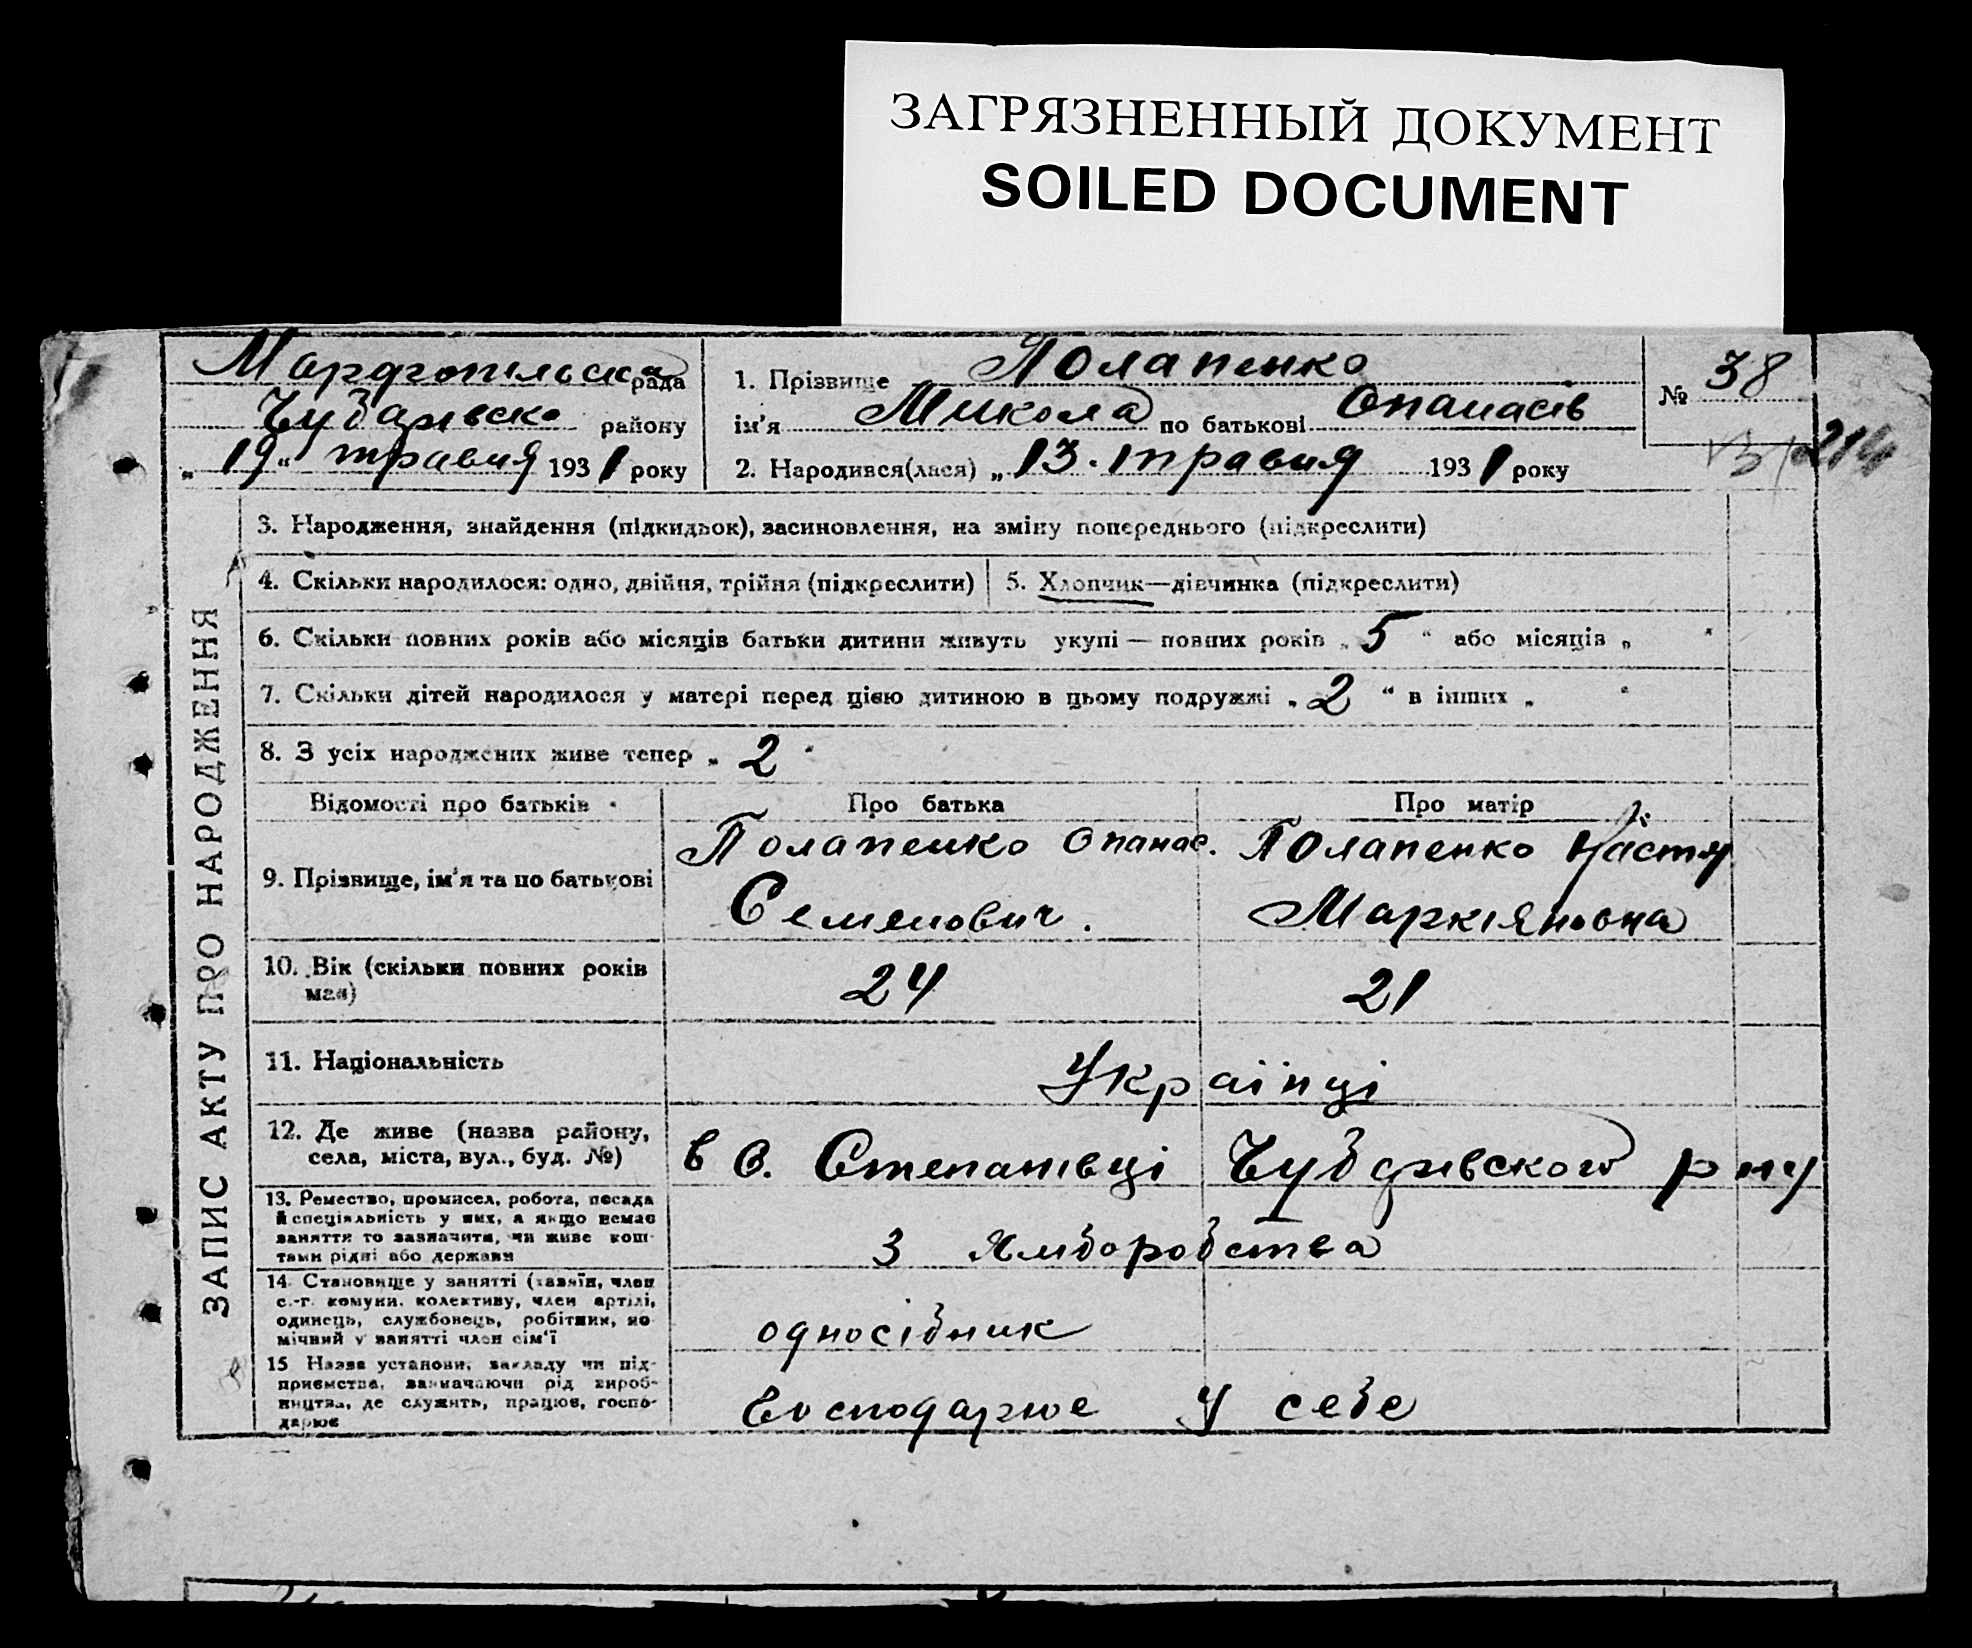 ЗАГРЯЗНЕННЫЙ ДОКУМЕНТ
SOILED DOCUMENT
рада
району
„19“ травня 1931 року
1. Прізвище Полапенко
ім'я Микола по батькові Опанасів
2. Народився(лася) „13. травня 1931 року
№ 38
214
ЗАПИС АКТУ ПРО НАРОДЖЕННЯ
3. Народження, знайдення (підкидьок), засиновлення, на зміну попереднього (підкреслити)
4. Скільки народилося: одно, двійня, трійня (підкреслити)
5. Хлопчик—дівчинка (підкреслити)
6. Скільки повних років або місяців батьки дитини живуть укупі — повних років „5“ або місяців „ “
7. Скільки дітей народилося у матері перед цією дитиною в цьому подружжі „2“ в інших „ “
8. З усіх народжених живе тепер „2“
Відомості про батьків
Про батька
Про матір
9. Прізвище, ім'я та по батькові
Полапенко Опанас.
Семенович.
Полапенко Настя
Маркіяновна
10. Вік (скільки повних років
має)
24
21
11. Національність
Українці
12. Де живе (назва району,
села, міста, вул., буд. №)
в с. Степанівці Чубарівского р ну
13. Ремество, промисел, робота, посада
й спеціяльність у них, а якщо немає
заняття то зазначити, чи живе кош-
тами рідні або держави
з хліборобства
14. Становище у занятті (хазяїн, член
с.-г. комуни, колективу, член артілі,
одинець, службовець, робітник, по-
мічний у занятті член сім'ї
односібник
15 Назва установи, закладу чи під-
приємства, зазначаючи рід вироб-
ництва, де служить, працює, госпо-
дарює
Господарює у себе